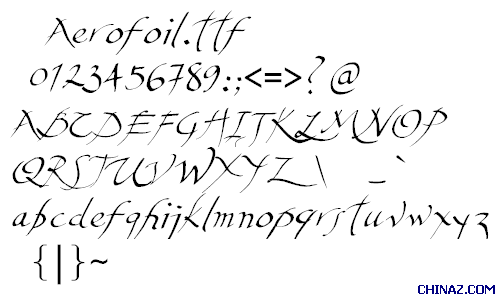 Aerofoil.ttf
0123456789:;<=>?@
ABCDEFGHIJKLMNOP
QRSTUVWXYZ\ _`
abcdefghijklmnopqrstuvwxyz
{|}~
CHINAZ.COM